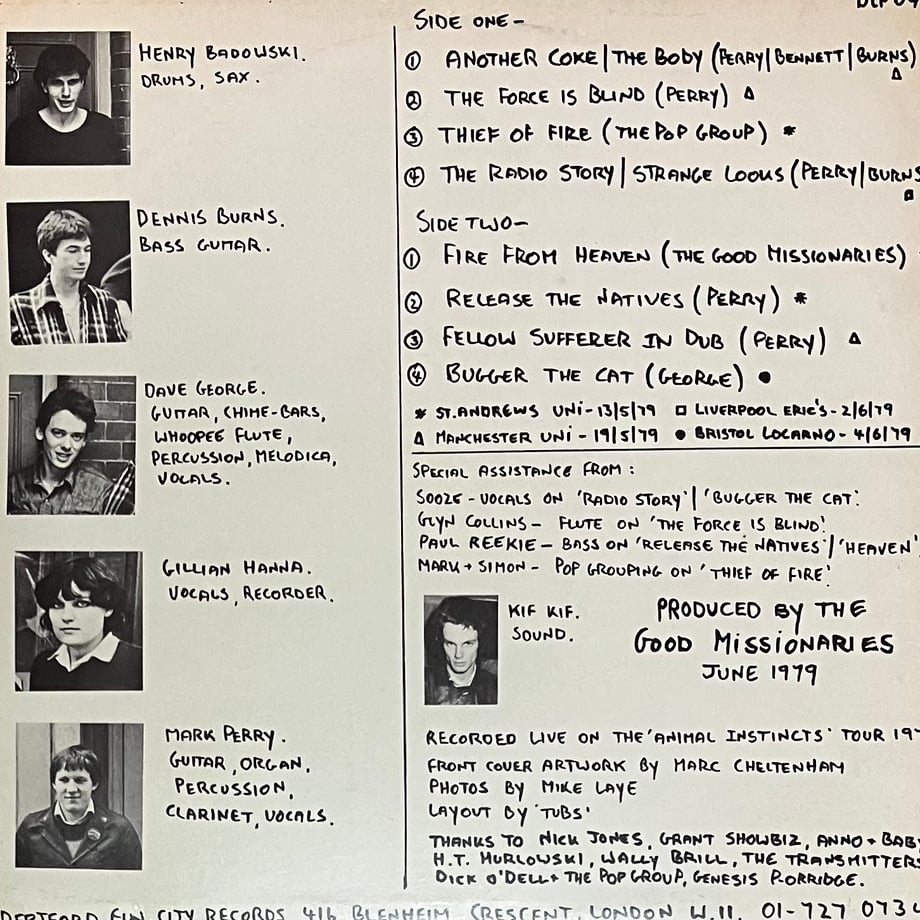 HENRY BADOWSKI.
DRUMS, SAX.
DENNIS BURNS.
BASS GUITAR.
DAVE GEORGE.
GUITAR, CHIME-BARS,
WHOOPEE FLUTE,
PERCUSSION, MELODICA,
VOCALS.
GILLIAN HANNA.
VOCALS, RECORDER.
MARK PERRY.
GUITAR, ORGAN,
PERCUSSION,
CLARINET, VOCALS.
SIDE ONE-
① ANOTHER COKE|THE BODY (PERRY|BENNETT|BURNS) △
② THE FORCE IS BLIND (PERRY) △
③ THIEF OF FIRE (THE POP GROUP) *
④ THE RADIO STORY|STRANGE LOOKS (PERRY|BURNS □
SIDE TWO-
① FIRE FROM HEAVEN (THE GOOD MISSIONARIES)
② RELEASE THE NATIVES (PERRY) *
③ FELLOW SUFFERER IN DUB (PERRY) △
④ BUGGER THE CAT (GEORGE) ●
* ST. ANDREWS UNI - 13/5/79 □ LIVERPOOL ERIC'S - 2/6/79
△ MANCHESTER UNI - 19/5/79 ● BRISTOL LOCARNO - 4/6/79
SPECIAL ASSISTANCE FROM:
SOOZE - VOCALS ON 'RADIO STORY'|'BUGGER THE CAT'.
GLYN COLLINS - FLUTE ON 'THE FORCE IS BLIND'.
PAUL REEKIE - BASS ON 'RELEASE THE NATIVES'|'HEAVEN'
MARK + SIMON - POP GROUPING ON 'THIEF OF FIRE'.
KIF KIF.
SOUND.
PRODUCED BY THE
GOOD MISSIONARIES
JUNE 1979
RECORDED LIVE ON THE 'ANIMAL INSTINCTS' TOUR 19
FRONT COVER ARTWORK BY MARC CHELTENHAM
PHOTOS BY MIKE LAYE
LAYOUT BY 'TUBS'
THANKS TO NICK JONES, GRANT SHOWBIZ, ANNO + BAB
H.T. MURLOWSKI, WALLY BRILL, THE TRANSMITTERS
DICK O'DELL + THE POP GROUP, GENESIS P.ORRIDGE.
DEPTFORD FUN CITY RECORDS 41b BLENHEIM CRESCENT, LONDON W.11 01-727 073